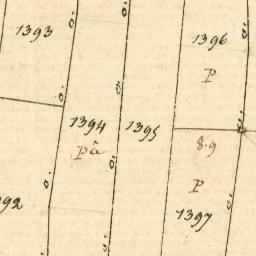 1393
1396
P
1394
1395
pâ
8.9
P
1397